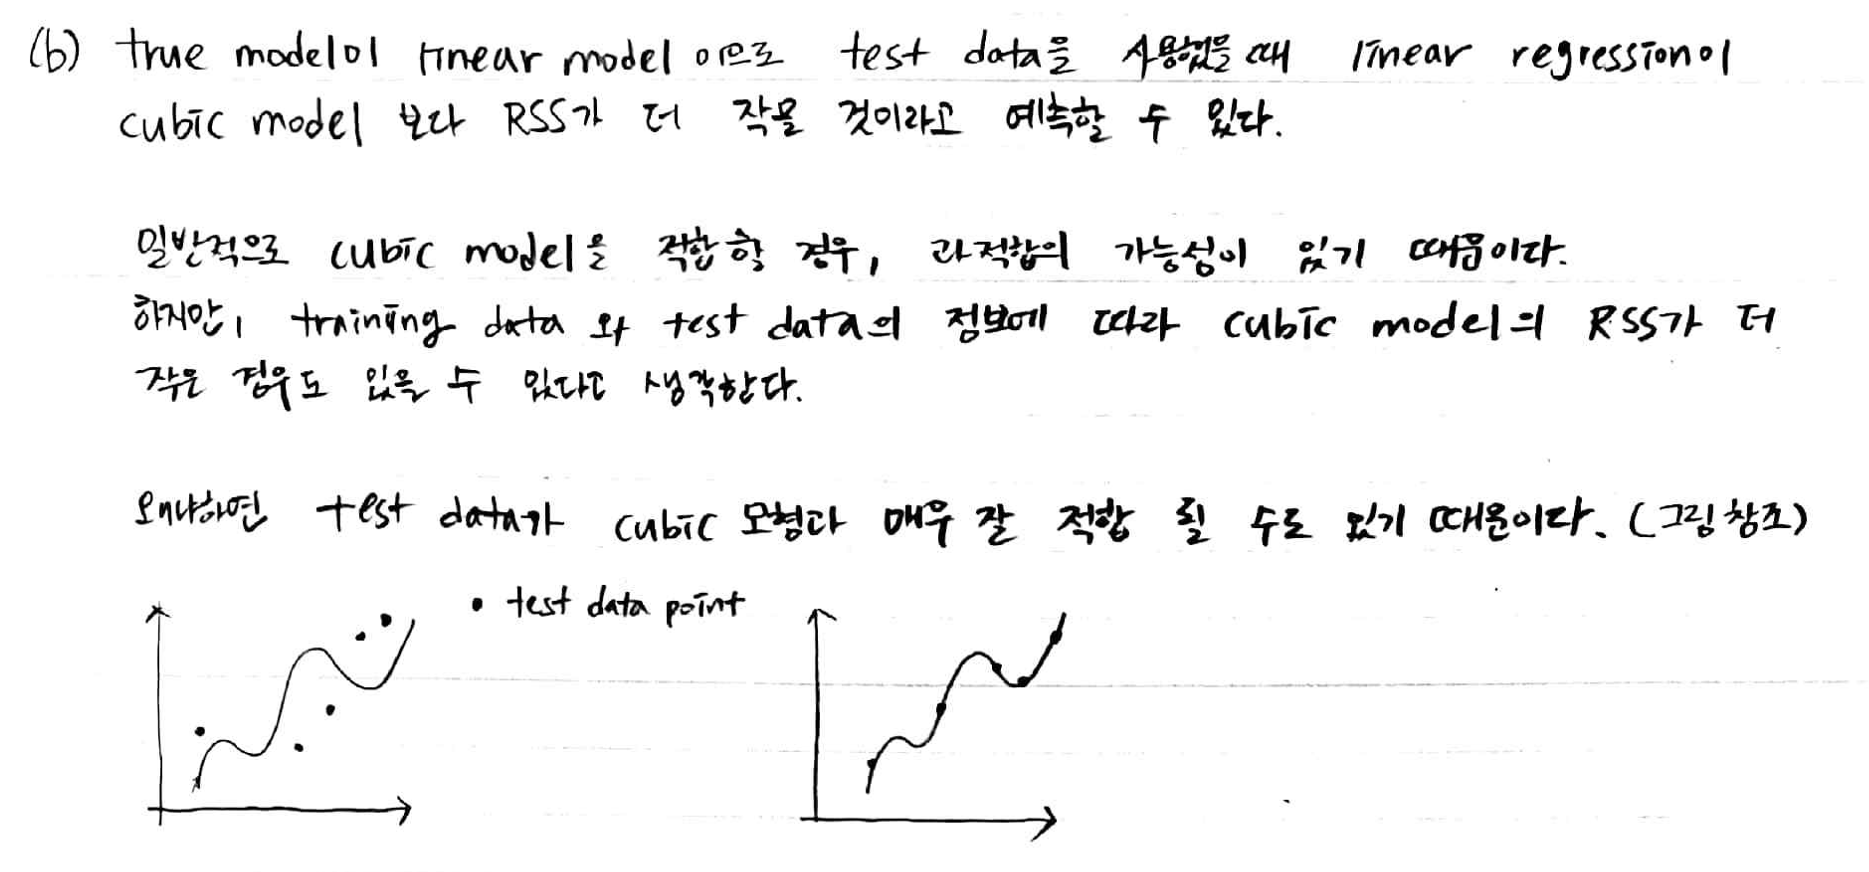 (b) true model이 linear model 이므로 test data를 사용했을 때 linear regression이
cubic model 보다 RSS가 더 작을 것이라고 예측할 수 있다.
일반적으로 cubic model을 적합 할 경우, 과적합의 가능성이 있기 때문이다.
하지만, training data 와 test data의 정보에 따라 cubic model의 RSS가 더
작은 경우도 있을 수 있다고 생각한다.
왜냐하면 test data가 cubic 모형과 매우 잘 적합 될 수도 있기 때문이다. (그림 참조)
• test data point